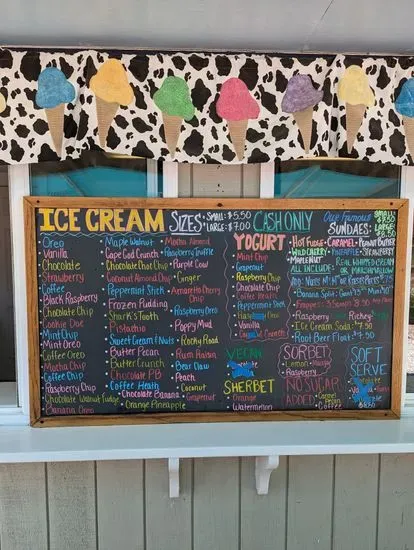 ICE CREAM
SIZES
• SMALL: $5.50
• LARGE: $7.00
CASH ONLY
• Oreo
• Vanilla
• Chocolate
• Strawberry
• Coffee
• Black Raspberry
• Chocolate Chip
• Cookie Doe
• Mint Chip
• Mint Oreo
• Coffee Oreo
• Mocha Chip
• Coffee Chip
• Raspberry Chip
• Chocolate Walnut Fudge
• Banana Oreo
• Maple Walnut
• Cape Cod Crunch
• Chocolate Choc Chip
• Coconut Almond Chip
• Peppermint Stick
• Frozen Pudding
• Shark's Tooth
• Pistachio
• Sweet Cream & Nuts
• Butter Pecan
• Butter Crunch
• Chocolate PB
• Coffee Heath
• Chocolate Banana
• Orange Pineapple
• Mocha Almond
• Raspberry Truffle
• Purple Cow
• Ginger
• Amaretto Cherry Chip
• Raspberry Oreo
• Poppy Mud
• Rocky Road
• Rum Raisin
• Bear Claw
• Peach
• Coconut
• Grapenut
YOGURT
• Mint Chip
• Grapenut
• Raspberry Chip
• Chocolate Chip
• Coffee Heath
• Peppermint Stick
• Vanilla
VEGAN
SHERBET
• Orange
• Watermelon
Our Famous
SUNDAES:
SMALL
$7.50
LARGE
• HOT FUDGE • CARAMEL • PEANUT BUTTER
• WILD CHERRY • PINEAPPLE
• MAPLE NUT
ALL INCLUDE:
REAL WHIPPED CREAM
OR MARSHMALLOW
• Banana Split:
• Frappes:
Raspberry Rickey:
• Ice Cream Soda: $7.50
• Root Beer Float: $7.50
SORBET
• Lemon • Mango
• Raspberry
NO SUGAR
ADDED
• Coffee
SOFT
SERVE